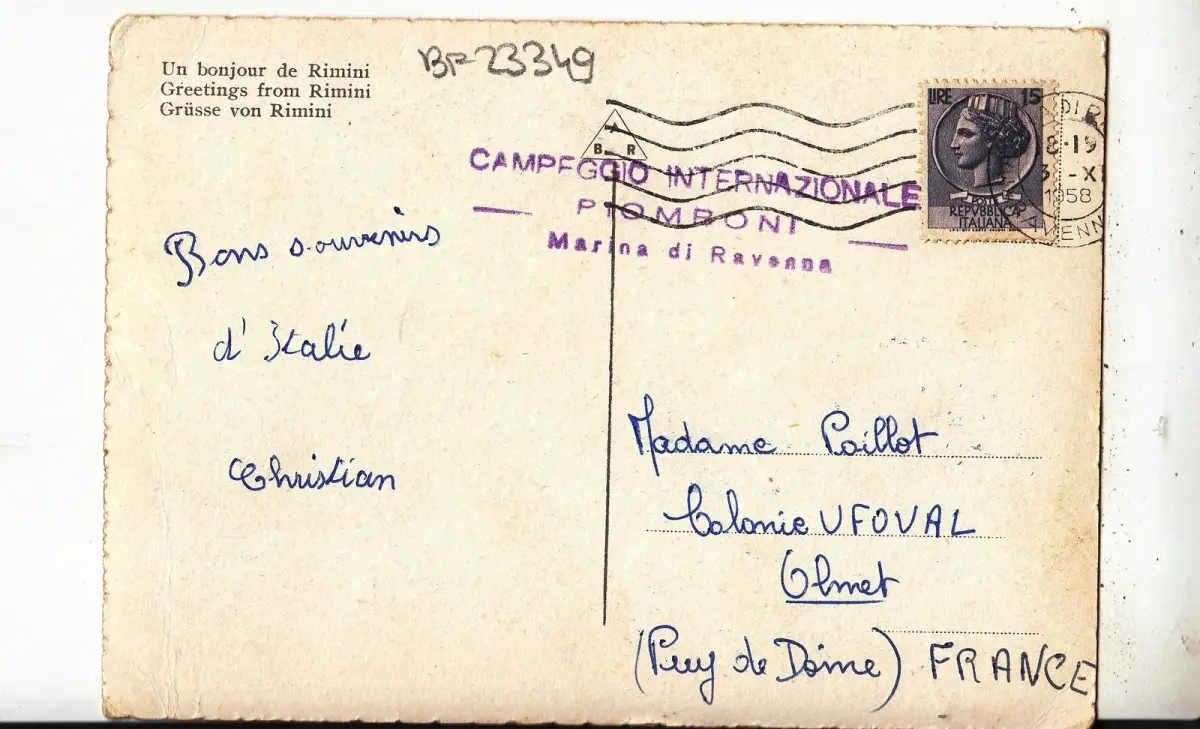 Un bonjour de Rimini
Greetings from Rimini
Grüsse von Rimini
BF-23349
LIRE 15
POSTE
REPVBBLICA
ITALIANA
18-19
1958
A
B R
CAMPEGGIO INTERNAZIONALE
PIOMBONI
Marina di Ravenna
Bons souvenirs
d'Italie
Christian
Madame Paillot
Colonie UFOVAL
Olmet
(Puy de Dôme) FRANCE